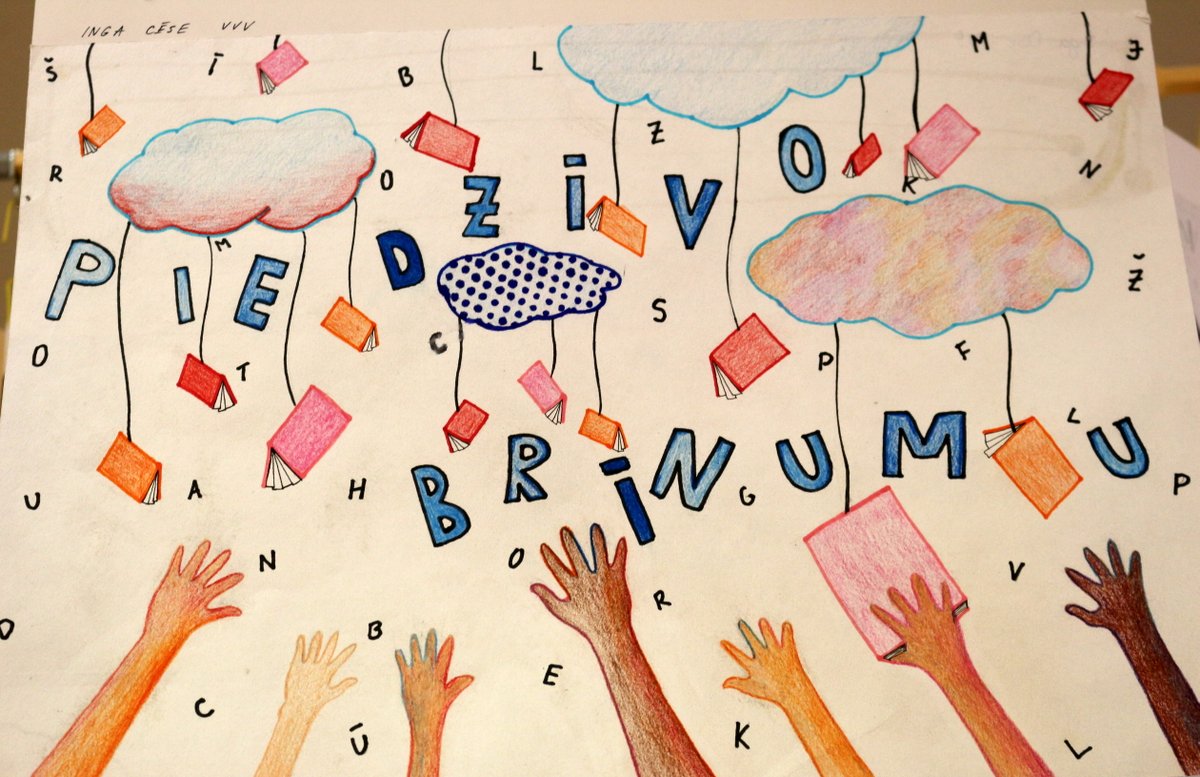 INGA CĒSE VVV
Š Ī B L M J
Z
R O K N
PIEDZĪVO
M Ž
C S
O T P F
L
BRĪNUMU
U A H G P
N O V
D B R
E
C Ū K L